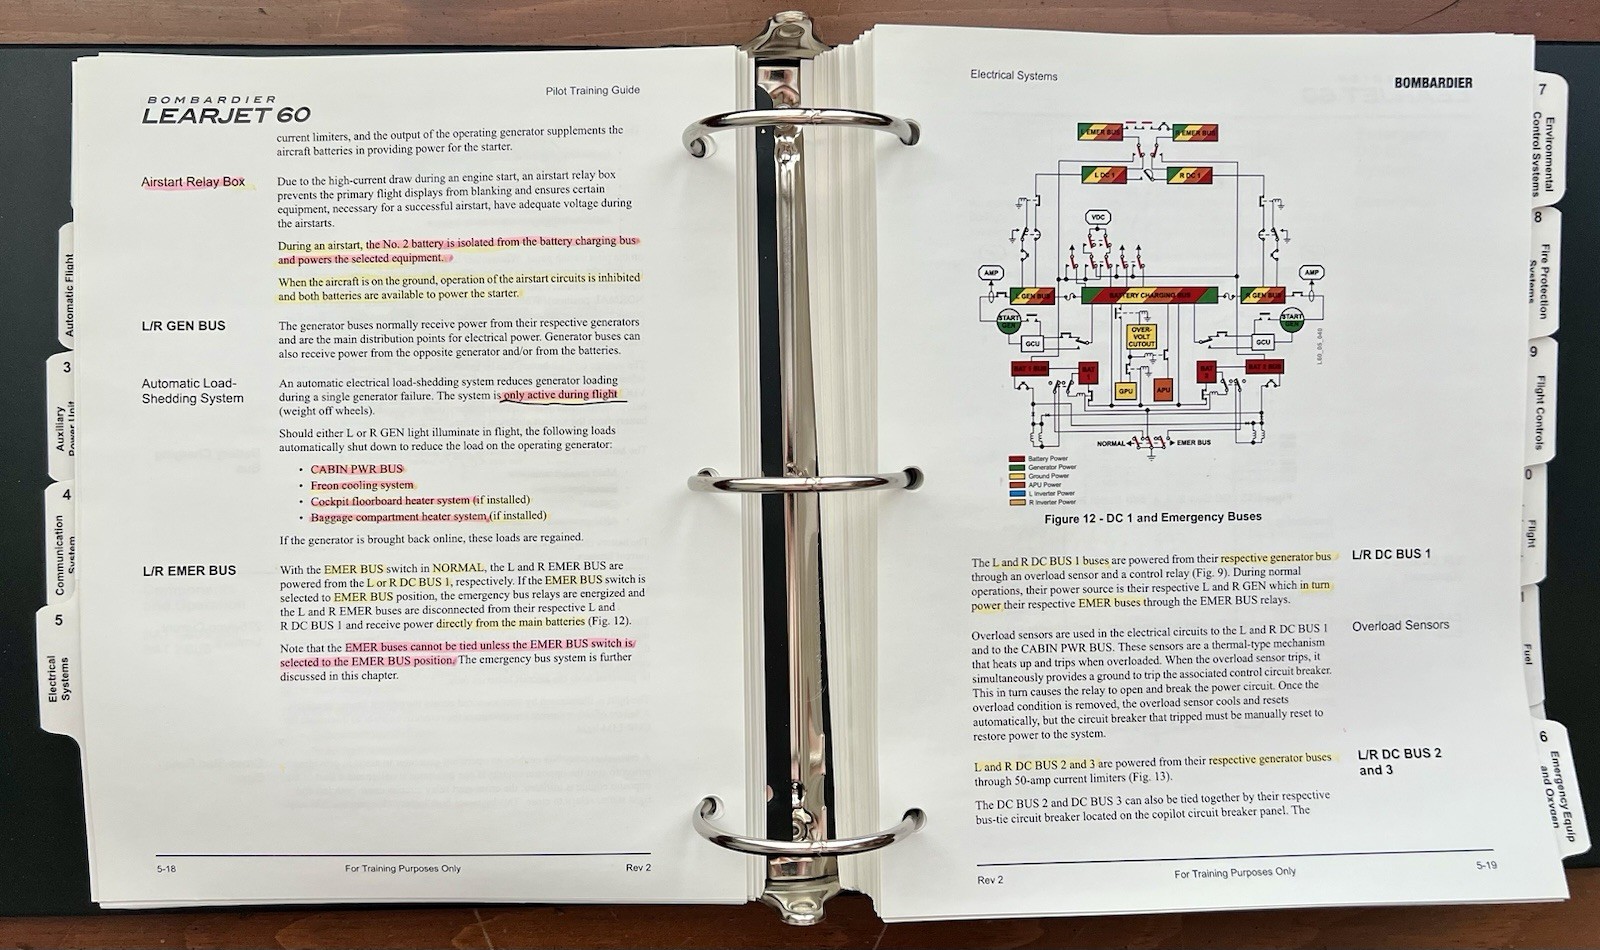 BOMBARDIER
LEARJET 60
Pilot Training Guide
current limiters, and the output of the operating generator supplements the
aircraft batteries in providing power for the starter.
Airstart Relay Box
Due to the high-current draw during an engine start, an airstart relay box
prevents the primary flight displays from blanking and ensures certain
equipment, necessary for a successful airstart, have adequate voltage during
the airstarts.
During an airstart, the No. 2 battery is isolated from the battery charging bus
and powers the selected equipment.
When the aircraft is on the ground, operation of the airstart circuits is inhibited
and both batteries are available to power the starter.
L/R GEN BUS
The generator buses normally receive power from their respective generators
and are the main distribution points for electrical power. Generator buses can
also receive power from the opposite generator and/or from the batteries.
Automatic Load-
Shedding System
An automatic electrical load-shedding system reduces generator loading
during a single generator failure. The system is only active during flight
(weight off wheels).
Should either L or R GEN light illuminate in flight, the following loads
automatically shut down to reduce the load on the operating generator:
• CABIN PWR BUS
• Freon cooling system
• Cockpit floorboard heater system (if installed)
• Baggage compartment heater system (if installed)
If the generator is brought back online, these loads are regained.
L/R EMER BUS
With the EMER BUS switch in NORMAL, the L and R EMER BUS are
powered from the L or R DC BUS 1, respectively. If the EMER BUS switch is
selected to EMER BUS position, the emergency bus relays are energized and
the L and R EMER buses are disconnected from their respective L and
R DC BUS 1 and receive power directly from the main batteries (Fig. 12).
Note that the EMER buses cannot be tied unless the EMER BUS switch is
selected to the EMER BUS position. The emergency bus system is further
discussed in this chapter.
5-18
For Training Purposes Only
Rev 2
Automatic Flight
3
Auxiliary
Power Unit
4
Communication
System
5
Electrical
Systems
Electrical Systems
BOMBARDIER
L EMER BUS
R EMER BUS
L DC 1
R DC 1
VDC
AMP
AMP
L GEN BUS
BATTERY CHARGING BUS
R GEN BUS
START
GEN
OVER-
VOLT
CUTOUT
START
GEN
GCU
GCU
BAT 1 BUS
BAT
1
BAT
2
BAT 2 BUS
GPU
APU
NORMAL
EMER BUS
Battery Power
Generator Power
Ground Power
APU Power
L Inverter Power
R Inverter Power
Figure 12 - DC 1 and Emergency Buses
The L and R DC BUS 1 buses are powered from their respective generator bus
through an overload sensor and a control relay (Fig. 9). During normal
operations, their power source is their respective L and R GEN which in turn
power their respective EMER buses through the EMER BUS relays.
L/R DC BUS 1
Overload sensors are used in the electrical circuits to the L and R DC BUS 1
and to the CABIN PWR BUS. These sensors are a thermal-type mechanism
that heats up and trips when overloaded. When the overload sensor trips, it
simultaneously provides a ground to trip the associated control circuit breaker.
This in turn causes the relay to open and break the power circuit. Once the
overload condition is removed, the overload sensor cools and resets
automatically, but the circuit breaker that tripped must be manually reset to
restore power to the system.
Overload Sensors
L and R DC BUS 2 and 3 are powered from their respective generator buses
through 50-amp current limiters (Fig. 13).
L/R DC BUS 2
and 3
The DC BUS 2 and DC BUS 3 can also be tied together by their respective
bus-tie circuit breaker located on the copilot circuit breaker panel. The
Rev 2
For Training Purposes Only
5-19
7
Environmental
Control Systems
8
Fire Protection
Systems
9
Flight Controls
0
Flight
Fuel
6
Emergency Equip
and Oxygen